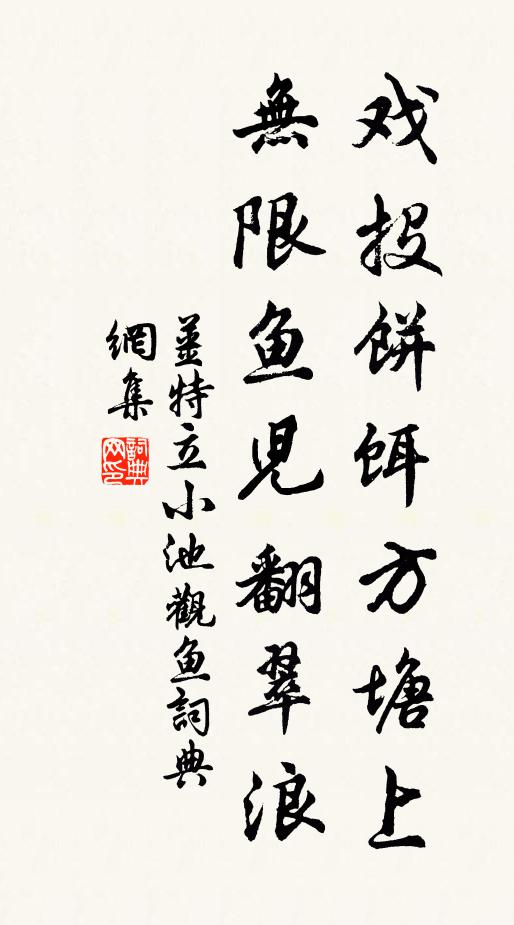 戏投餅饵方塘上
無限鱼児翻翠浪
薑特立小池觀鱼詞典
網集
詞典网印